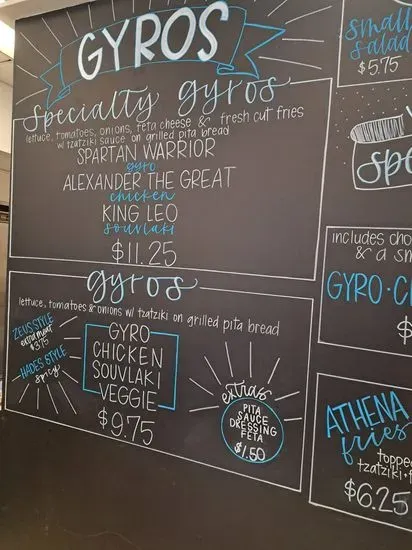 GYROS
Specialty gyros
lettuce, tomatoes, onions, feta cheese & fresh cut fries
w/ tzatziki sauce on grilled pita bread
SPARTAN WARRIOR
gyro
ALEXANDER THE GREAT
chicken
KING LEO
souvlaki
$11.25
gyros
lettuce, tomatoes & onions w/ tzatziki on grilled pita bread
ZEUS STYLE
extra meat
$3.75
HADES STYLE
spicy
GYRO
CHICKEN
SOUVLAKI
VEGGIE
$9.75
extras
PITA
SAUCE
DRESSING
FETA
$1.50
small
salad
$5.75
spe
includes cho
& a sm
GYRO · C
$
ATHENA
fries
toppe
tzatziki + f
$6.25